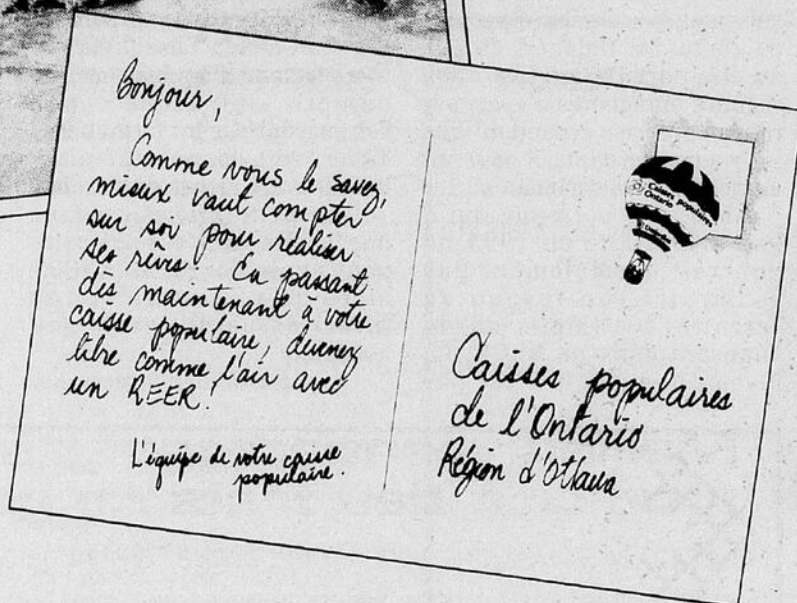 Bonjour,
Comme vous le savez,
mieux vaut compter
sur soi pour réaliser
ses rêves. En passant
dès maintenant à votre
caisse populaire, devenez
libre comme l'air avec
un REER!
L'équipe de votre caisse
populaire.
Caisses populaires
Ontario
Caisses populaires
de l'Ontario
Région d'Ottawa